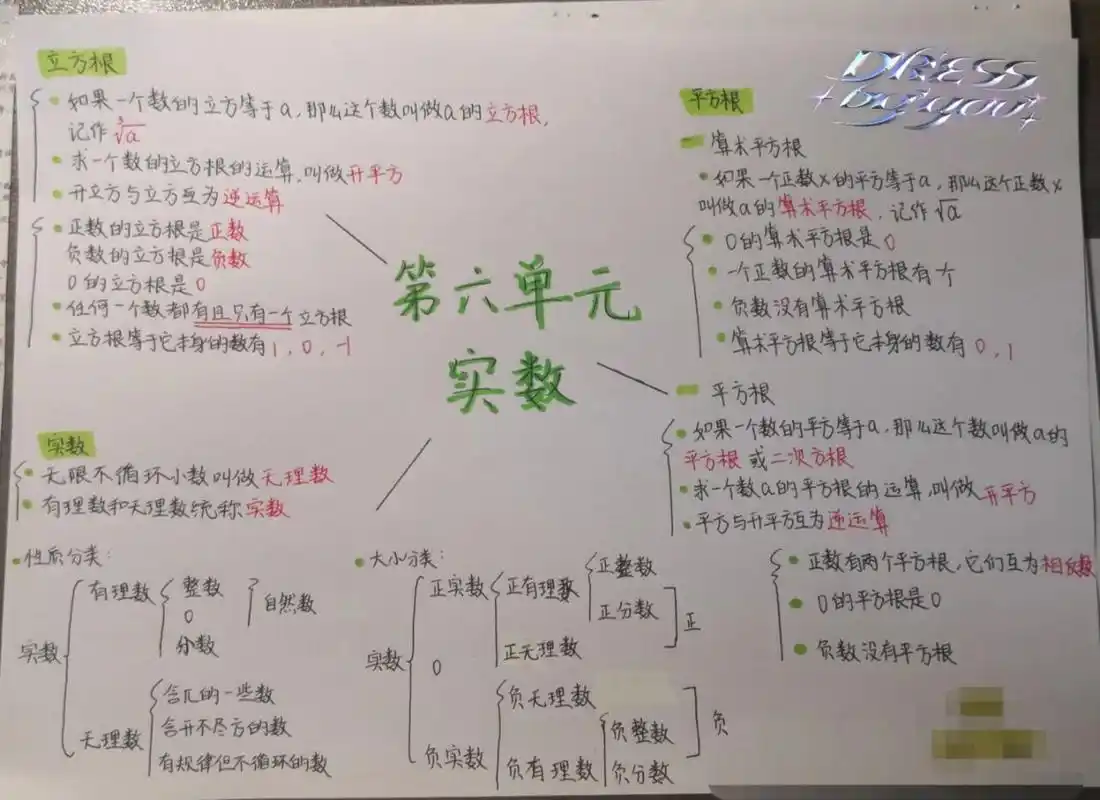 立方根
如果一个数的立方等于a,那么这个数叫做a的立方根,
记作∛a
求一个数的立方根的运算,叫做开平方
开立方与立方互为逆运算
正数的立方根是正数
负数的立方根是负数
0的立方根是0
任何一个数都有且只有一个立方根
立方根等于它本身的数有1,0,-1
第六单元
实数
DRESS
by you
平方根
算术平方根
如果一个正数x的平方等于a,那么这个正数x
叫做a的算术平方根,记作√a
0的算术平方根是0
一个正数的算术平方根有个
负数没有算术平方根
算术平方根等于它本身的数有0,1
平方根
如果一个数的平方等于a,那么这个数叫做a的
平方根或二次方根
求一个数a的平方根的运算,叫做开平方
平方与开平方互为逆运算
正数有两个平方根,它们互为相反数
0的平方根是0
负数没有平方根
实数
无限不循环小数叫做无理数
有理数和无理数统称实数
性质分类:
实数
有理数
整数
0
分数
自然数
无理数
含π的一些数
含开不尽方的数
有规律但不循环的数
大小分类:
实数
正实数
正有理数
正整数
正分数
正无理数
正
0
负实数
负无理数
负有理数
负整数
负分数
负